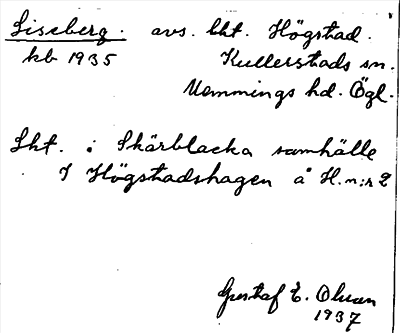 Liseberg. avs. lht. Högstad.
kb 1935 Kullerstads sn.
Memmings hd. Ögl.
Lht. i Skärblacka samhälle
I Högstadshagen å H. n:r 2
Gustaf E. Olsson
1937